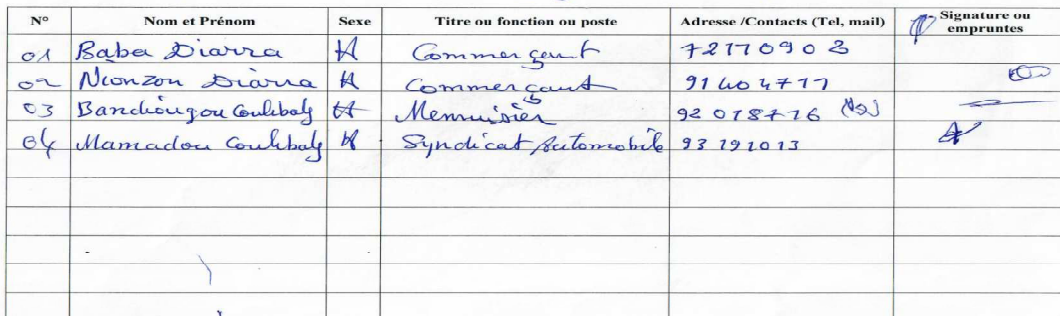 N° Nom et Prénom Sexe Titre ou fonction ou poste Adresse /Contacts (Tel, mail) Signature ou empruntes
01 Baba Diarra H Commerçant 72170903
02 Nionzon Diarra H Commerçant 91404717
03 Bandiougou Coulibaly H Menuisier 92078776
04 Mamadou Coulibaly H Syndicat Automobile 93191013